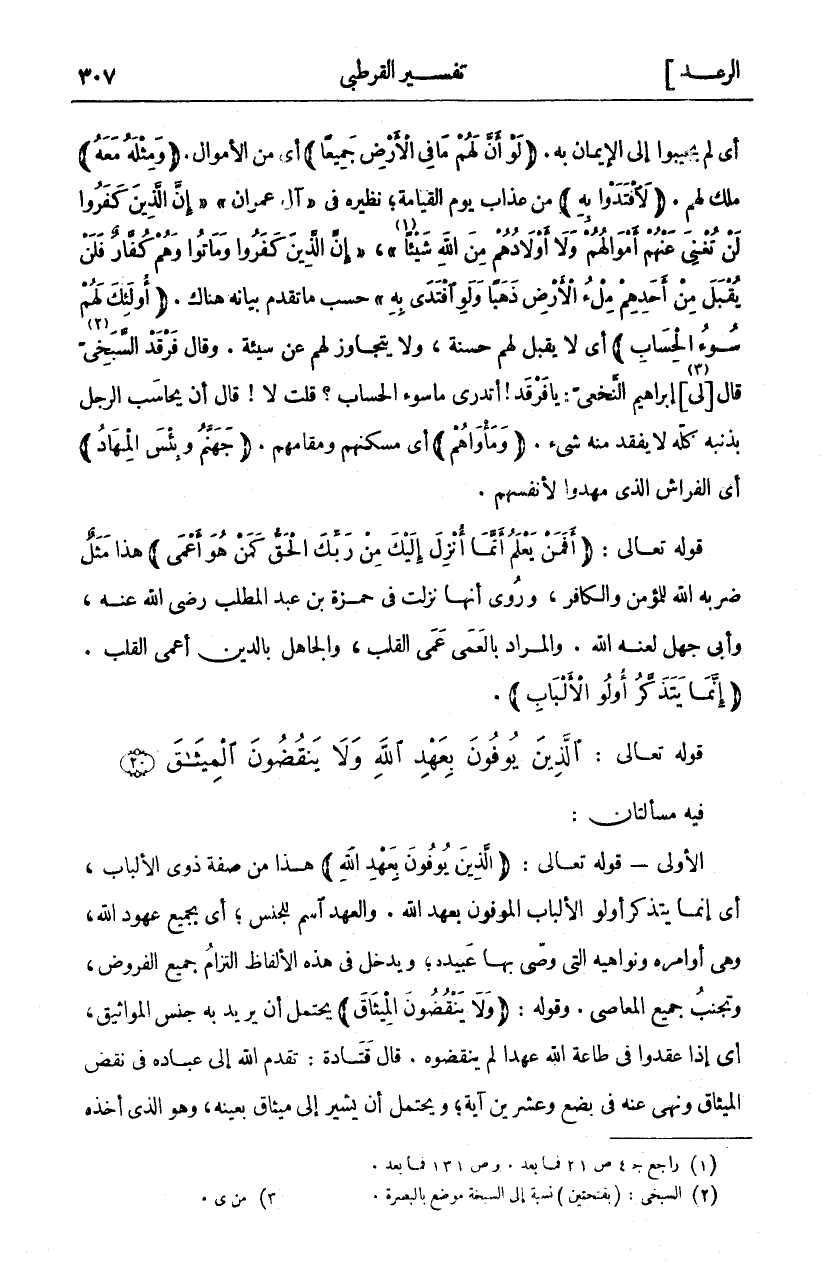 الرعد ] تفسير القرطبى ٣٠٧
أى لم يجيبوا إلى الإيمان به . ﴿ لَوْ أَنَّ لَهُمْ مَا فِى الْأَرْضِ جَمِيعًا ﴾ أى من الأموال . ﴿ وَمِثْلَهُ مَعَهُ ﴾
ملك لهم . ﴿ لَافْتَدَوْا بِهِ ﴾ من عذاب يوم القيامة؛ نظيره فى « آل عمران » « إِنَّ الَّذِينَ كَفَرُوا
لَنْ تُغْنِىَ عَنْهُمْ أَمْوَالُهُمْ وَلَا أَوْلَادُهُمْ مِنَ اللهِ شَيْئًا (١) » ، « إِنَّ الَّذِينَ كَفَرُوا وَمَاتُوا وَهُمْ كُفَّارٌ فَلَنْ
يُقْبَلَ مِنْ أَحَدِهِمْ مِلْءُ الْأَرْضِ ذَهَبًا وَلَوِ ٱفْتَدَى بِهِ » حسب ما تقدم بيانه هناك . ﴿ أُولَئِكَ لَهُمْ
سُوءُ الْحِسَابِ ﴾ أى لا يقبل لهم حسنة ، ولا يتجاوز لهم عن سيئة . وقال فَرْقَد السَّبَخِىّ (٢)
قال [لى] (٣) إبراهيم النَّخعىّ : يا فَرْقد ! أتدرى ما سوء الحساب ؟ قلت لا ! قال أن يحاسَب الرجل
بذنبه كلّه لا يفقد منه شىء . ﴿ وَمَأْوَاهُمْ ﴾ أى مسكنهم ومقامهم . ﴿ جَهَنَّمُ وَبِئْسَ الْمِهَادُ ﴾
أى الفراش الذى مهدوا لأنفسهم .
قوله تعالى : ﴿ أَفَمَنْ يَعْلَمُ أَنَّمَا أُنْزِلَ إِلَيْكَ مِنْ رَبِّكَ الْحَقُّ كَمَنْ هُوَ أَعْمَى ﴾ هذا مَثَلٌ
ضربه الله للمؤمن والكافر ، ورُوى أنها نزلت فى حمزة بن عبد المطلب رضى الله عنه ،
وأبى جهل لعنه الله . والمراد بالعَمَى عَمَى القلب ، والجاهل بالدين أعمى القلب .
﴿ إِنَّمَا يَتَذَكَّرُ أُولُو الْأَلْبَابِ ﴾ .
قوله تعالى : ٱلَّذِينَ يُوفُونَ بِعَهْدِ ٱللَّهِ وَلَا يَنقُضُونَ ٱلْمِيثَٰقَ ٢٠
فيه مسألتان :
الأولى — قوله تعالى : ﴿ الَّذِينَ يُوفُونَ بِعَهْدِ اللهِ ﴾ هذا من صفة ذوى الألباب ،
أى إنما يتذكر أولو الألباب الموفون بعهد الله . والعهد ٱسم للجنس ؛ أى بجميع عهود الله ،
وهى أوامره ونواهيه التى وصّى بها عَبيده؛ ويدخل فى هذه الألفاظ التزامُ جميع الفروض ،
وتجنبُ جميع المعاصى . وقوله : ﴿ وَلَا يَنْقُضُونَ الْمِيثَاقَ ﴾ يحتمل أن يريد به جنس المواثيق ،
أى إذا عقدوا فى طاعة الله عهدا لم ينقضوه . قال قَتَادة : تقدم الله إلى عباده فى نقض
الميثاق ونهى عنه فى بضع وعشرين آية؛ ويحتمل أن يشير إلى ميثاق بعينه ، وهو الذى أخذه
(١) راجع جـ ٤ ص ٢١ فما بعد . وص ١٣١ فما بعد .
(٢) السبخى : (بفتحتين) نسبة إلى السبخة موضع بالبصرة . ٣) من ى .